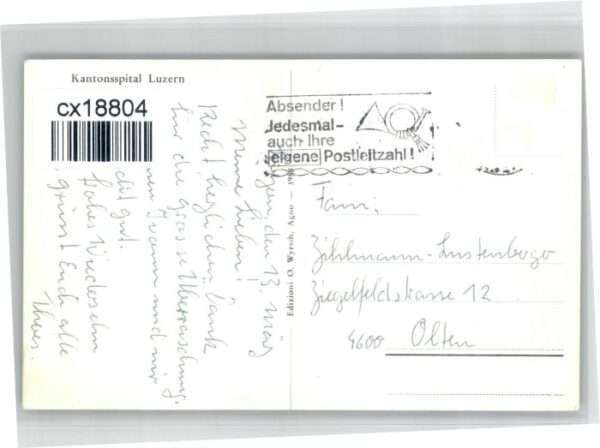 Kantonsspital Luzern
cx18804
den 13. März
Meine Lieben!
Recht herzlichen Dank
für die grosse Überraschung.
und mir
gut.
frohes Wiedersehn
grüsst Euch alle
Edizioni O. Wyrsch, Agno
Absender!
Jedesmal-
auch Ihre
eigene Postleitzahl!
Fam:
Zihlmann-Lustenberger
Ziegelfeldstrasse 12
4600 Olten